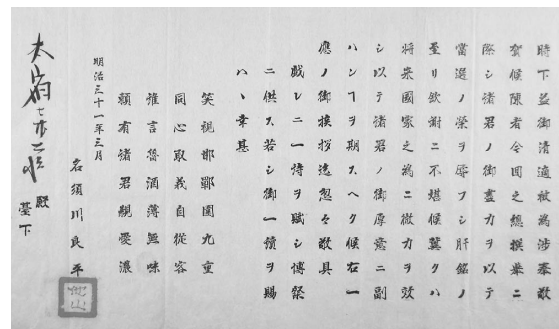 時下益御清適被為渉奉敬
賀候陳者今回之總撰挙ニ
際シ諸君ノ御盡力ヲ以テ
當選ノ榮ヲ辱フシ肝銘ノ
至リ欽謝ニ不堪候冀クハ
将来國家之為ニ微力ヲ效
シ以テ諸君ノ御厚意ニ副
ハンヿヲ期スヘク候右一
應ノ御挨拶迄怱々敬具
戯レニ一詩ヲ賦シ博粲
ニ供ス若シ御一讀ヲ賜
ハヽ幸甚
笑視邯鄲囲九重
同心取義自従容
惟言魯酒薄無味
頼有諸君親愛濃
明治三十一年三月
名須川良平
殿
臺下